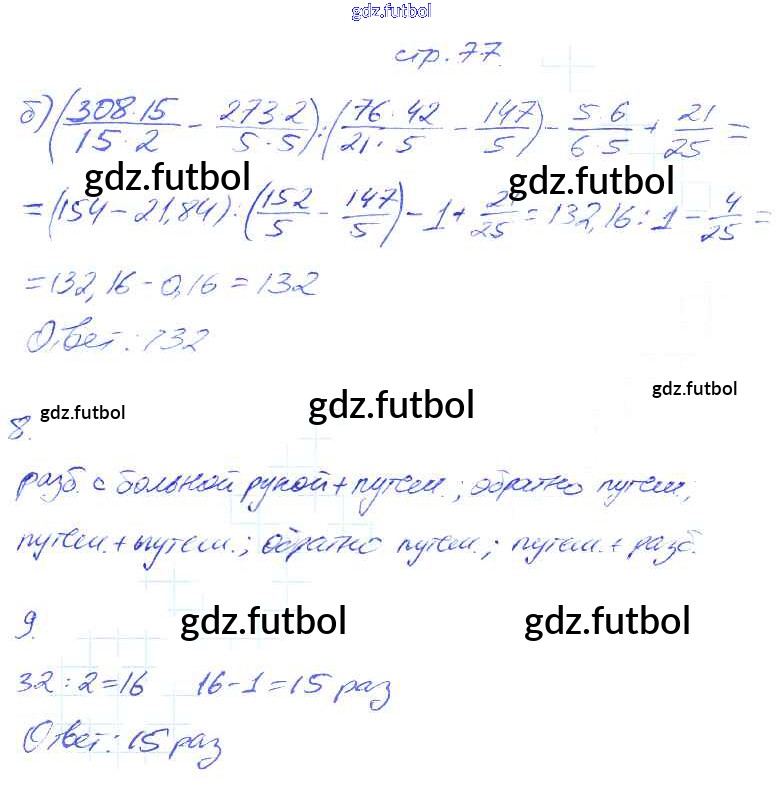 gdz.futbol
стр. 77.
б) (308·15/15·2 − 273·2/5·5) : (76·42/21·5 − 147/5) − 5·6/6·5 + 21/25 =
gdz.futbol gdz.futbol
= (154 − 21,84) : (152/5 − 147/5) − 1 + 21/25 = 132,16 : 1 − 4/25 =
= 132,16 − 0,16 = 132
Ответ: 132
gdz.futbol gdz.futbol gdz.futbol
8.
разб. с больной рукой + путем.; обратно путем;
путем. + путем.; обратно путем.; путем. + разб.
9. gdz.futbol gdz.futbol
32 : 2 = 16 16 − 1 = 15 раз
Ответ: 15 раз